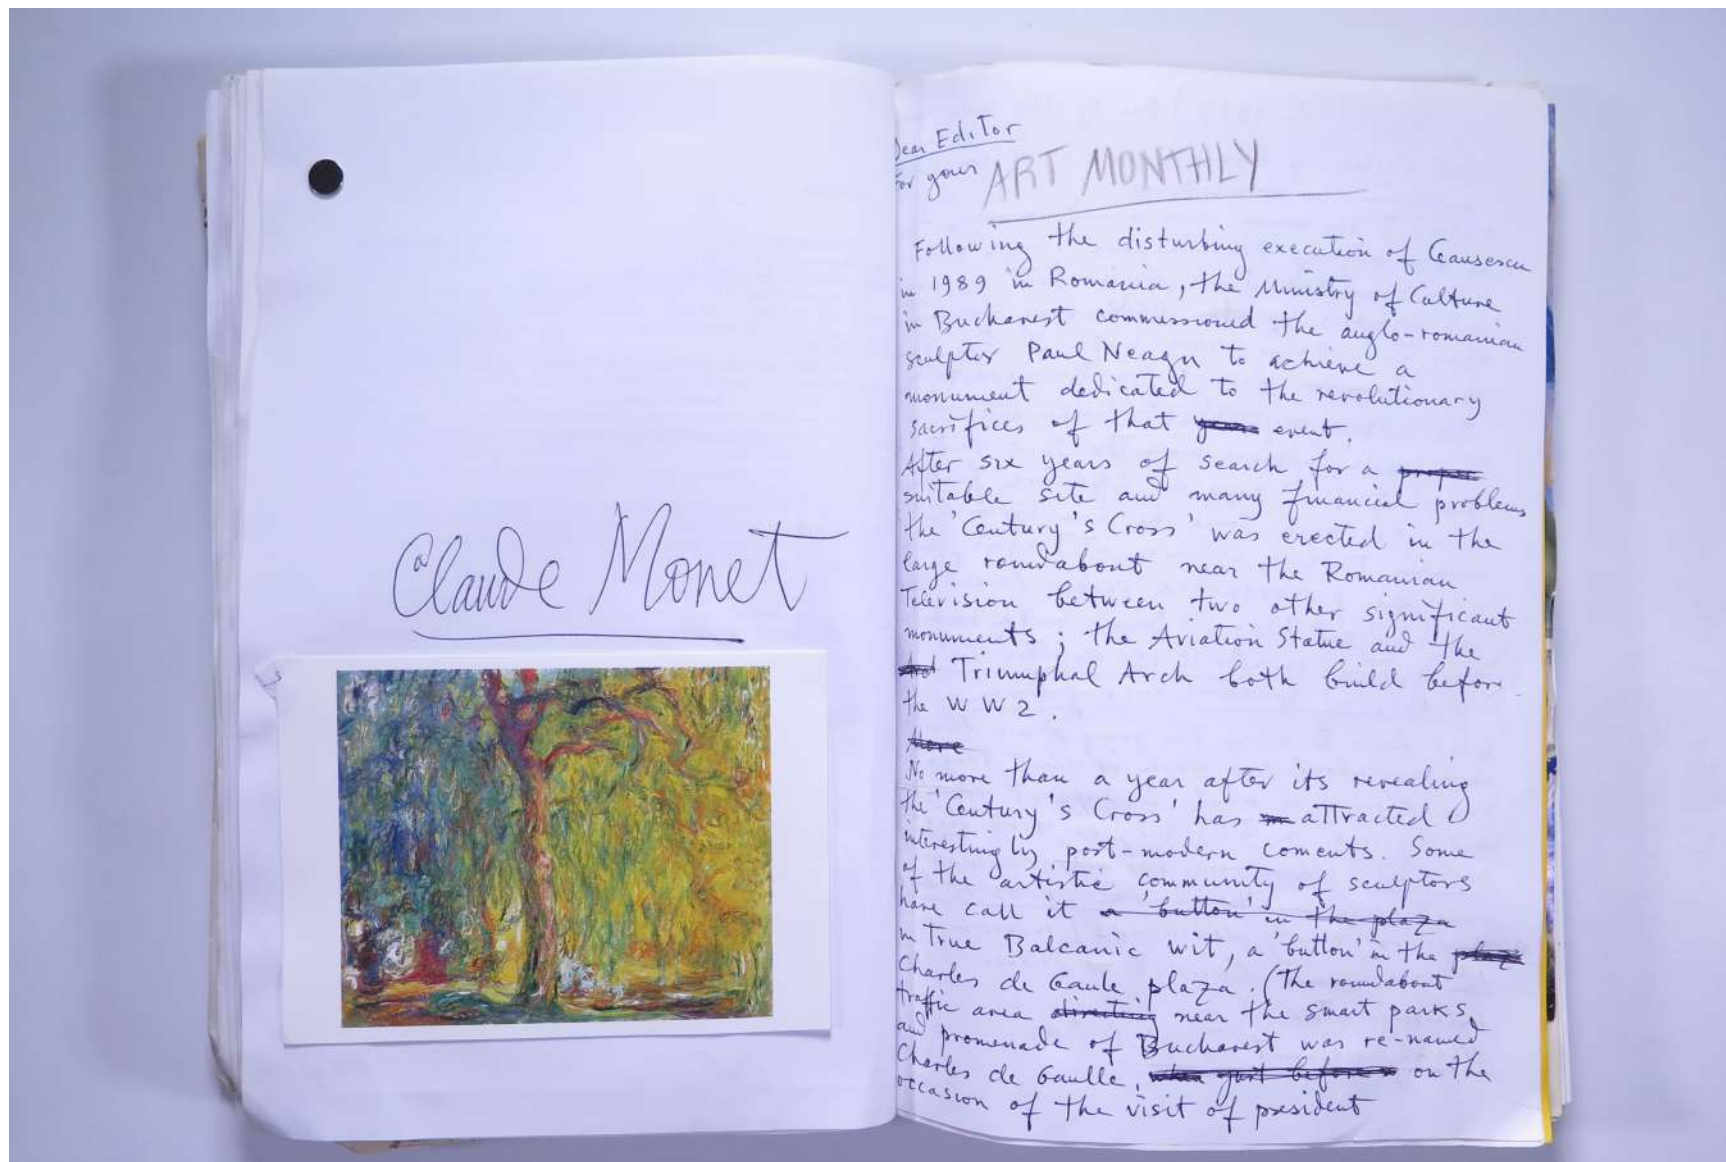 Claude Monet
Dear Editor
For your ART MONTHLY
Following the disturbing execution of Ceausescu
in 1989 in Romania, the Ministry of Culture
in Bucharest commessioned the anglo-romanian
sculptor Paul Neagu to achieve a
monument dedicated to the revolutionary
sacrifices of that years event.
After six years of search for a proper
suitable site and many financial problems
the 'Century's Cross' was erected in the
large roundabout near the Romanian
Television between two other significant
monuments; the Aviation Statue and the
Triumphal Arch both build before
the WW2.
More
No more than a year after its revealing
the 'Century's Cross' has attracted
interestingly post-modern coments. Some
of the artistic community of sculptors
have call it a 'button' in the plaza
in True Balcanic wit, a 'button' in the plaza
Charles de Gaule plaza. (The roundabout
traffic area directing near the smart parks
and promenade of Bucharest was re-named
Charles de Gaulle, when just before on the
occasion of the visit of president